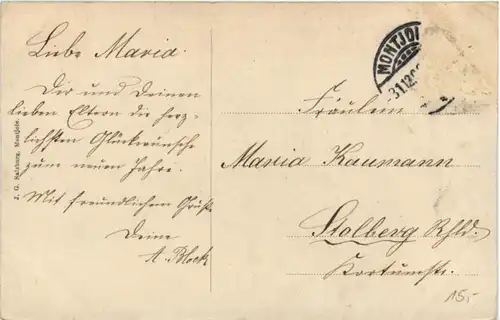 Liebe Maria.
Dir und Deinen
lieben Eltern die herz-
lichsten Glückwünsche
zum neuen Jahre.
Mit freundlichem Gruß
Deine
A. Block
J. G. Salzburg, Montjoie.
MONTJOI
31.12.0
Fräulein
Maria Kaumann
Stolberg Rhld.
Kortumstr.
15,-